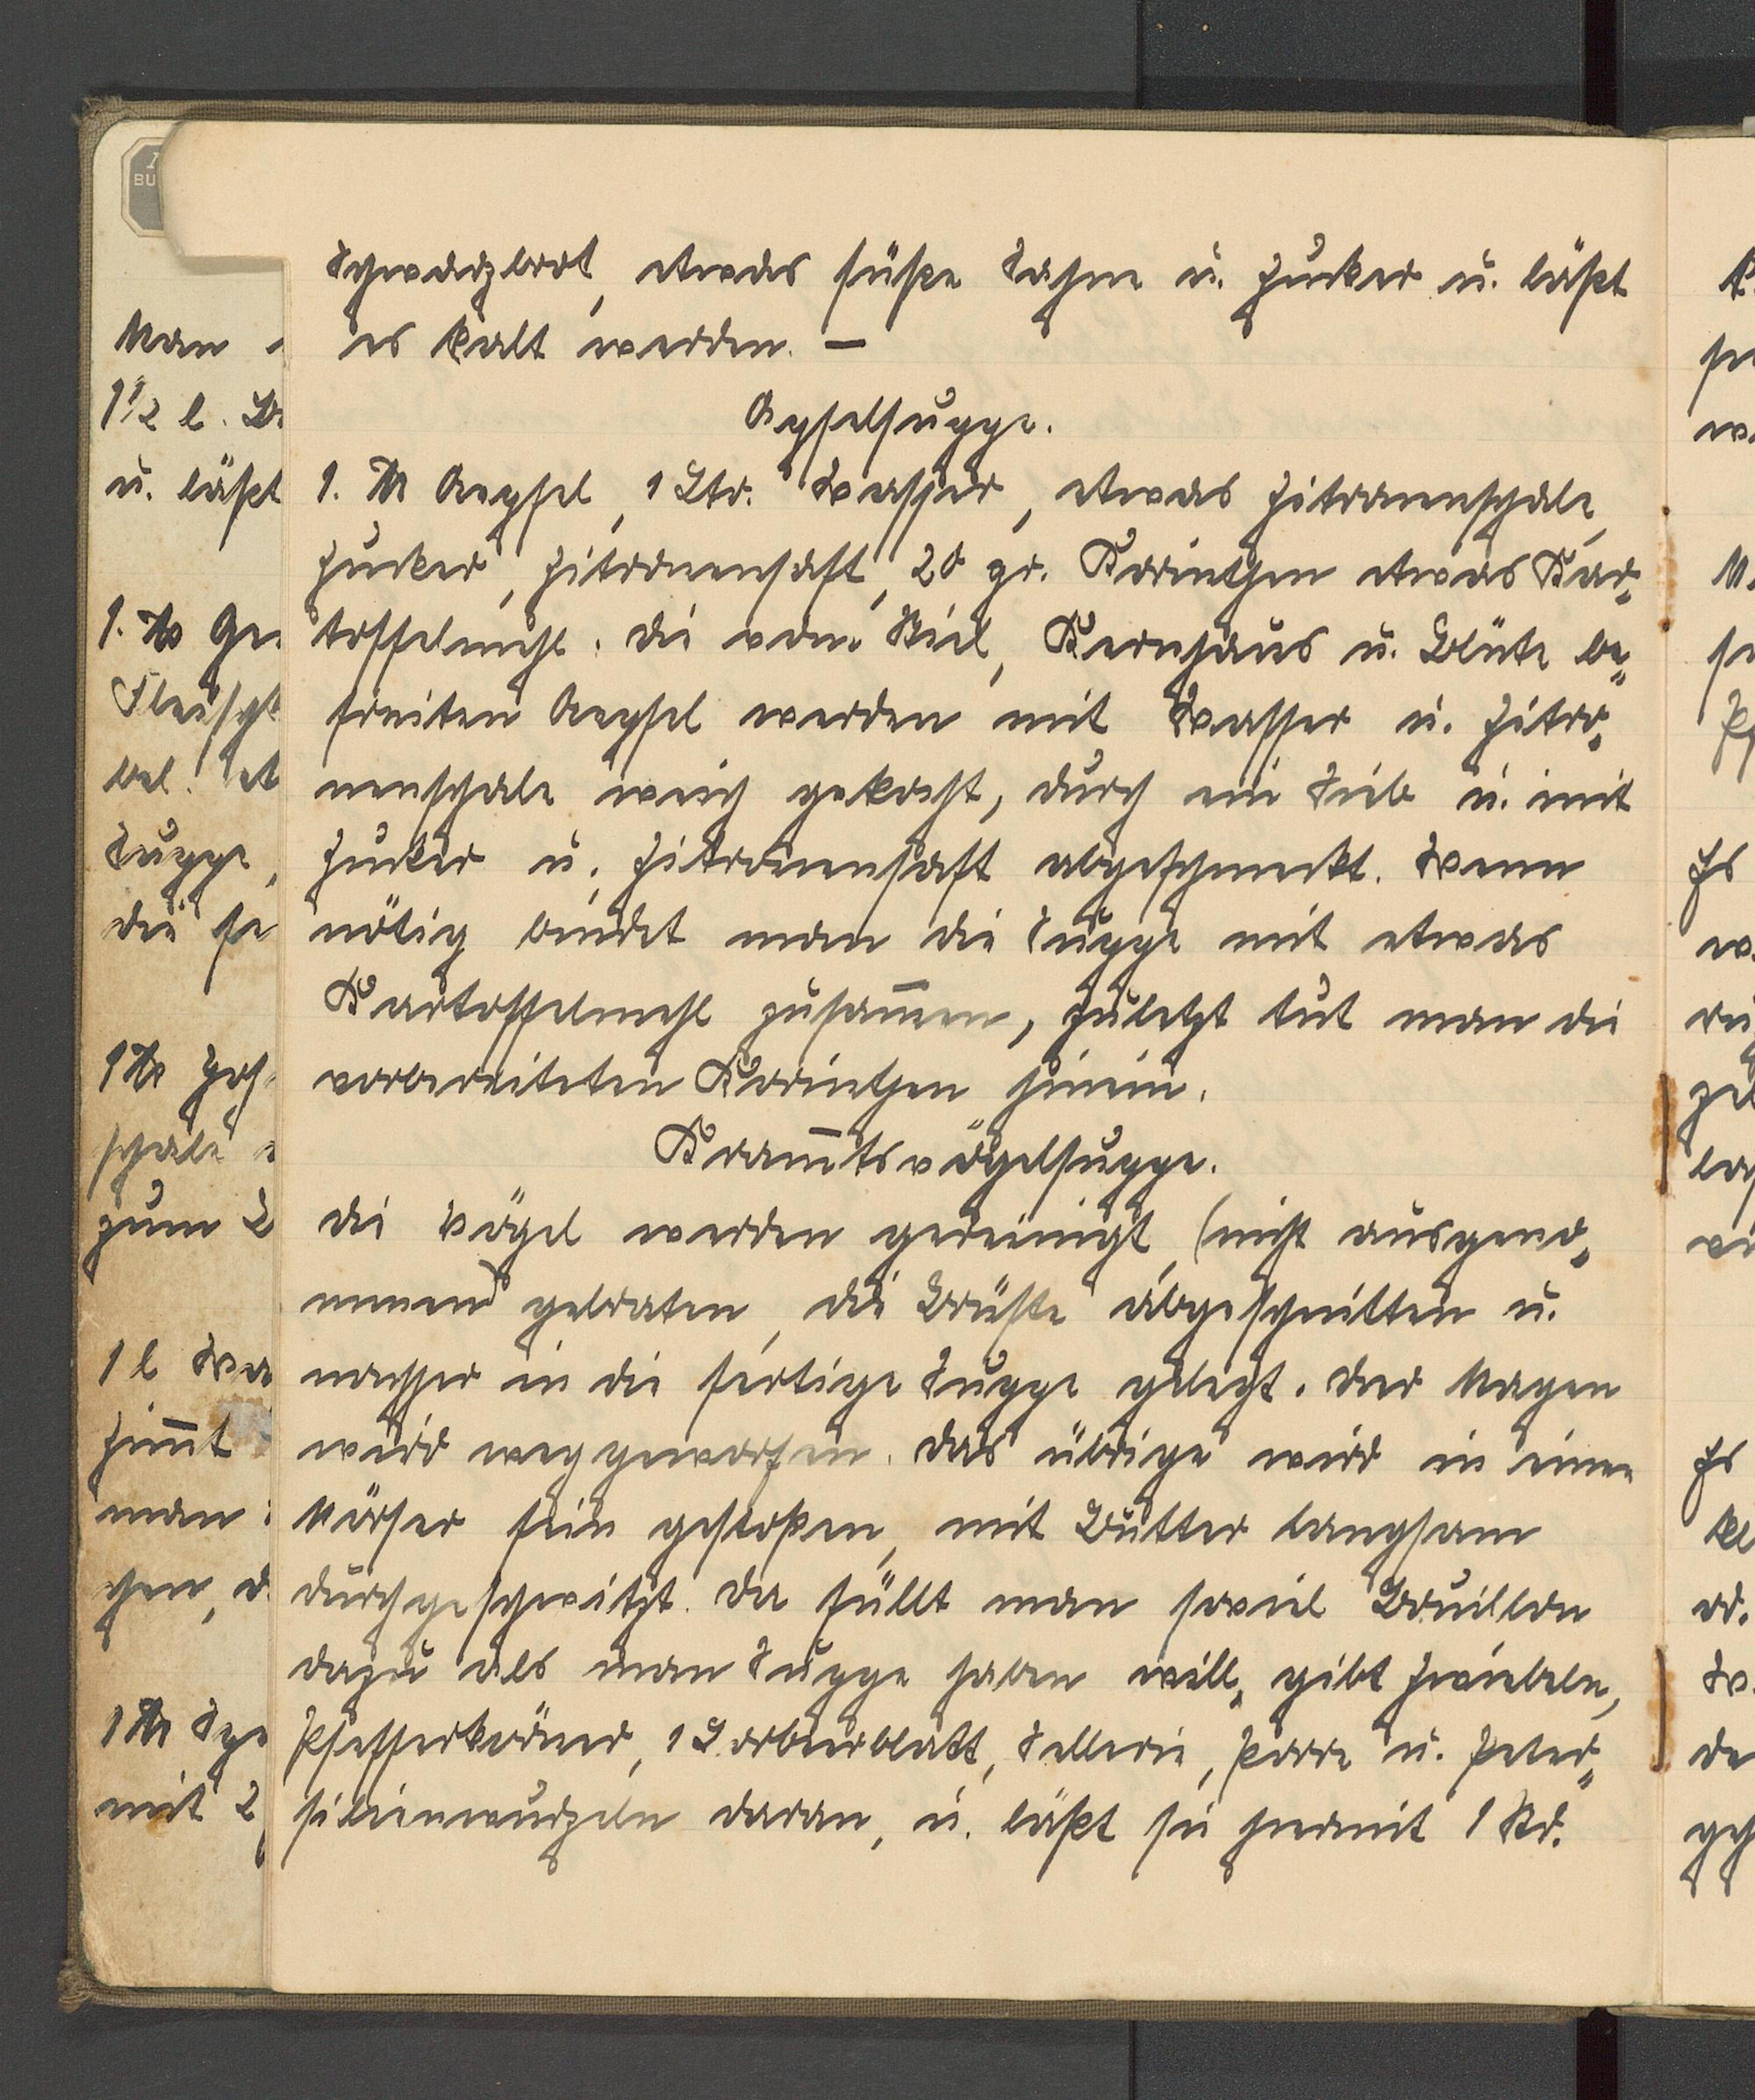 Schwarzbrot, etwas süße Sahne u. Zucker u. läßt
es kalt werden. —
Apfelsuppe.
1. ℔ Aepfel, 1 Ltr. Wasser, etwas Zitronenschale,
Zucker, Zitronensaft, 20 gr. Korinthen etwas Kar-
toffelmehl. Die vom Stiel, Kernhaus u. Blüte be-
freiten Aepfel werden mit Wasser u. Zitro-
nenschale weich gekocht, durch ein Sieb u. mit
Zucker u. Zitronensaft abgeschmeckt. Wenn
nötig bindet man die Suppe mit etwas
Kartoffelmehl zusam̅en, zuletzt tut man die
vorbereiteten Korinthen hinein.
Kram̅tsvögelsuppe.
Die Vögel werden gereinigt, (nicht ausgeno-
mmen) gebraten, die Brüste abgeschnitten u.
nachher in die fertige Suppe gelegt. Der Magen
wird weggeworfen. Das übrige wird in einen
Mörser fein gestoßen, mit Butter langsam
durchgeschwitzt. Da füllt man soviel Bouillon
dazu als man Suppe haben will, gibt Zwiebeln,
Pfefferkörner, 1 Lorbeerblatt, Sellerie, Porre u. Peter-
silienwurzeln daran, u. läßt sie hiermit 1 Std.
Man
1½ l.
u. läßt
1. ℔ Ge
Fleisch
bel. et
Suppe,
die se
1 ℔
schale
zum
1 l Wa
Zim̅t
man
gen, d
1 ℔ Spe
mit 2